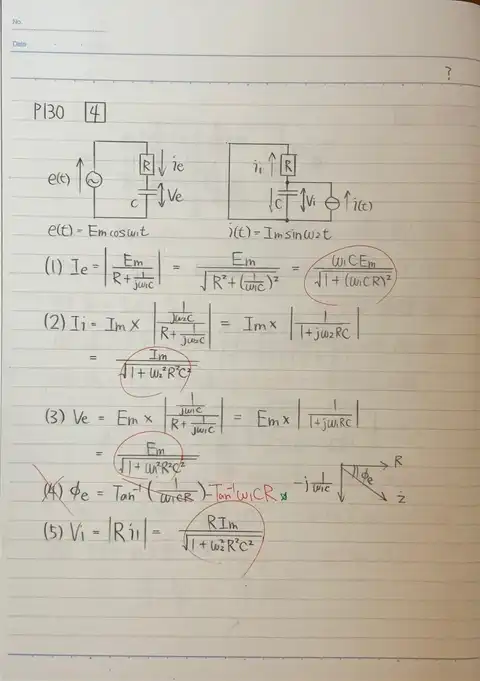 No.
Date
?
P130 4
e(t) R ie C Ve i1 R C Vi j(t)
e(t) = Em cosω1t j(t) = Im sinω2t
(1) Ie = |Em / (R + 1/(jω1C))| = Em / √(R² + (1/(ω1C))²) = ω1CEm / √(1 + (ω1CR)²)
(2) Ii = Im × |(1/(jω2C)) / (R + 1/(jω2C))| = Im × |1 / (1 + jω2RC)|
= Im / √(1 + ω2²R²C²)
(3) Ve = Em × |(1/(jω1C)) / (R + 1/(jω1C))| = Em × |1 / (1 + jω1RC)|
= Em / √(1 + ω1²R²C²)
(4) ϕe = Tan⁻¹(1/(ω1CR)) - Tan⁻¹ω1CR -j 1/(ω1C) ϕe R ż
(5) Vi = |R i1| = RIm / √(1 + ω2²R²C²)